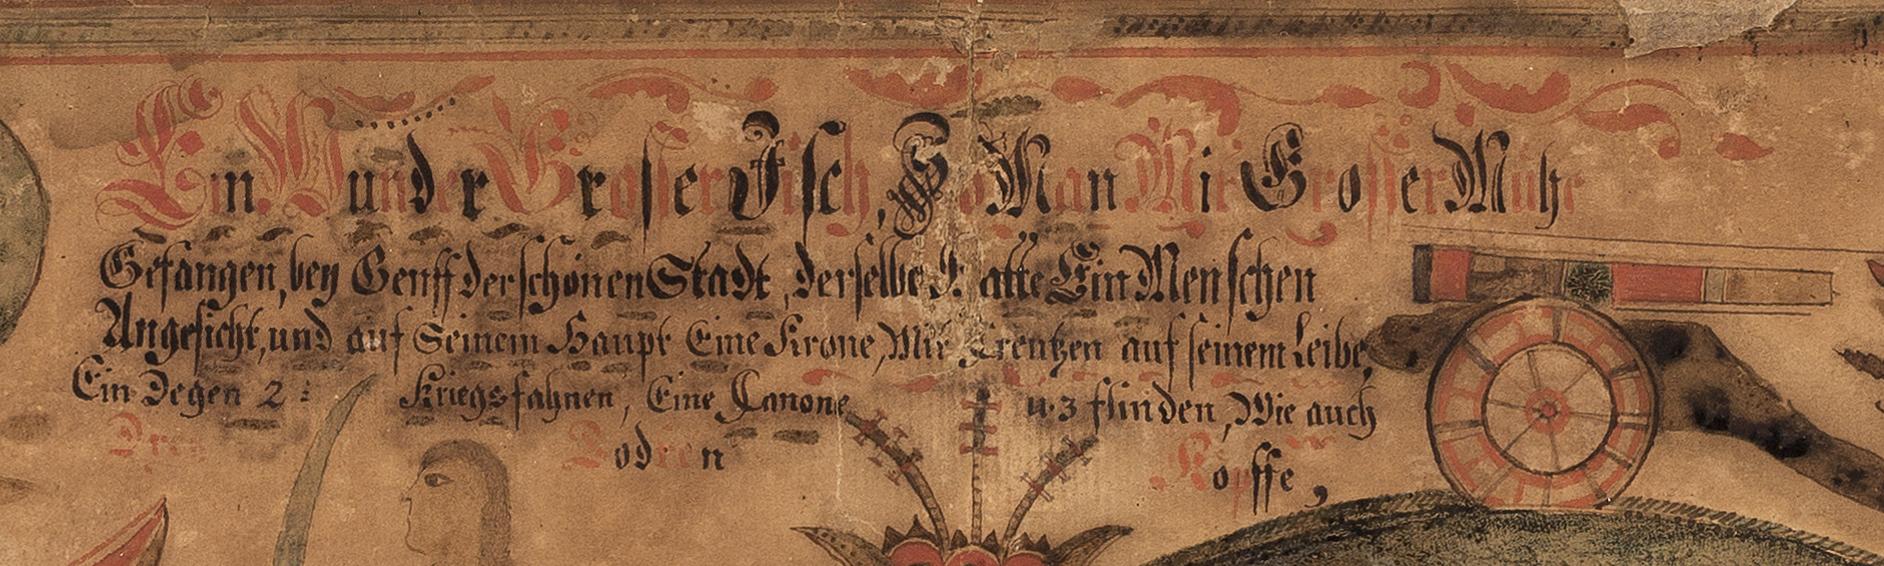 Ein Wunder Grosser Fisch, So Man Mit Grosser Mühe
Gefangen, bey Genff der schönen Stadt, derselbe Hatte Ein Menschen
Angesicht, und auf Seinem Haupt Eine Krone, Mit Creutzen auf seinem Leibe,
Ein Degen 2 : Kriegsfahnen, Eine Canone u. 3 flinden, Wie auch
Drey Todten Köpffe,